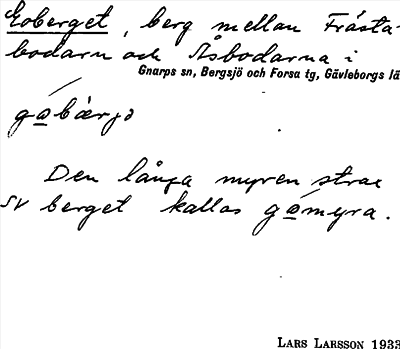 Goberget, berg mellan Frästa-
bodarn och Åsbodarna i
Gnarps sn, Bergsjö och Forsa tg, Gävleborgs lä
gobærjə
Den långa myren strax
sv berget kallas gomyra.
LARS LARSSON 1933